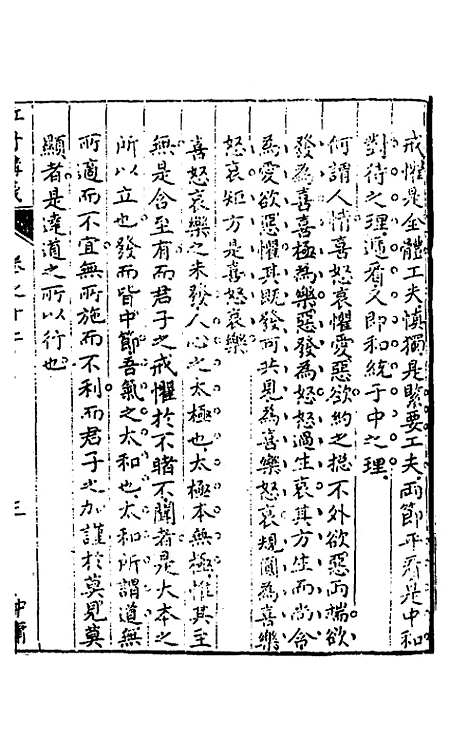 戒懼是全體工夫慎獨是緊要工夫兩節平看是中和
對待之理遞看又即和統于中之理
何謂人情喜怒哀懼愛惡欲約之摠不外欲惡兩端欲
發為喜喜極為樂惡發為怒怒過生哀其方生而尚含
為愛欲惡懼其既發可共見為喜樂怒哀規圓為喜樂
怒哀矩方是喜怒哀樂
喜怒哀樂之未發人心之太極也太極本無極惟其至
無是含至有而君子之戒懼於不睹不聞者是大本之
所以立也發而皆中節吾氣之太和也太和所謂道無
所適而不宜無所施而不利而君子之加謹於莫見莫
顯者是達道之所以行也
卷之十二
三
中庸